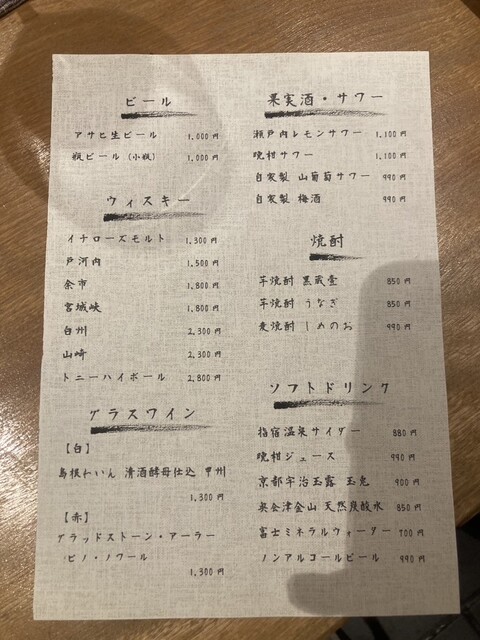 ビール
アサヒ生ビール 1,000円
瓶ビール（小瓶） 1,000円
ウィスキー
イチローズモルト 1,300円
戸河内 1,500円
余市 1,800円
宮城峡 1,800円
白州 2,300円
山崎 2,300円
トニーハイボール 2,800円
グラスワイン
【白】
島根わいん 清酒酵母仕込 甲州
1,300円
【赤】
グラッドストーン・アーラー
ピノ・ノワール
1,300円
果実酒・サワー
瀬戸内レモンサワー 1,100円
晩柑サワー 1,100円
自家製 山葡萄サワー 990円
自家製 梅酒 990円
焼酎
芋焼酎 黒蔵壺 850円
芋焼酎 うなぎ 850円
麦焼酎 しめのお 990円
ソフトドリンク
指宿温泉サイダー 880円
晩柑ジュース 990円
京都宇治玉露 玉兎 900円
奥会津金山 天然炭酸水 850円
富士ミネラルウォーター 700円
ノンアルコールビール 990円